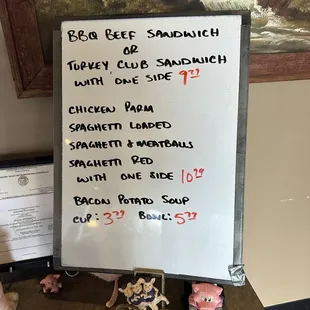 BBQ BEEF SANDWICH
OR
TURKEY CLUB SANDWICH
WITH ONE SIDE 9.29
CHICKEN PARM
SPAGHETTI LOADED
SPAGHETTI & MEATBALLS
SPAGHETTI RED
WITH ONE SIDE 10.29
BACON POTATO SOUP
CUP: 3.79 BOWL: 5.29